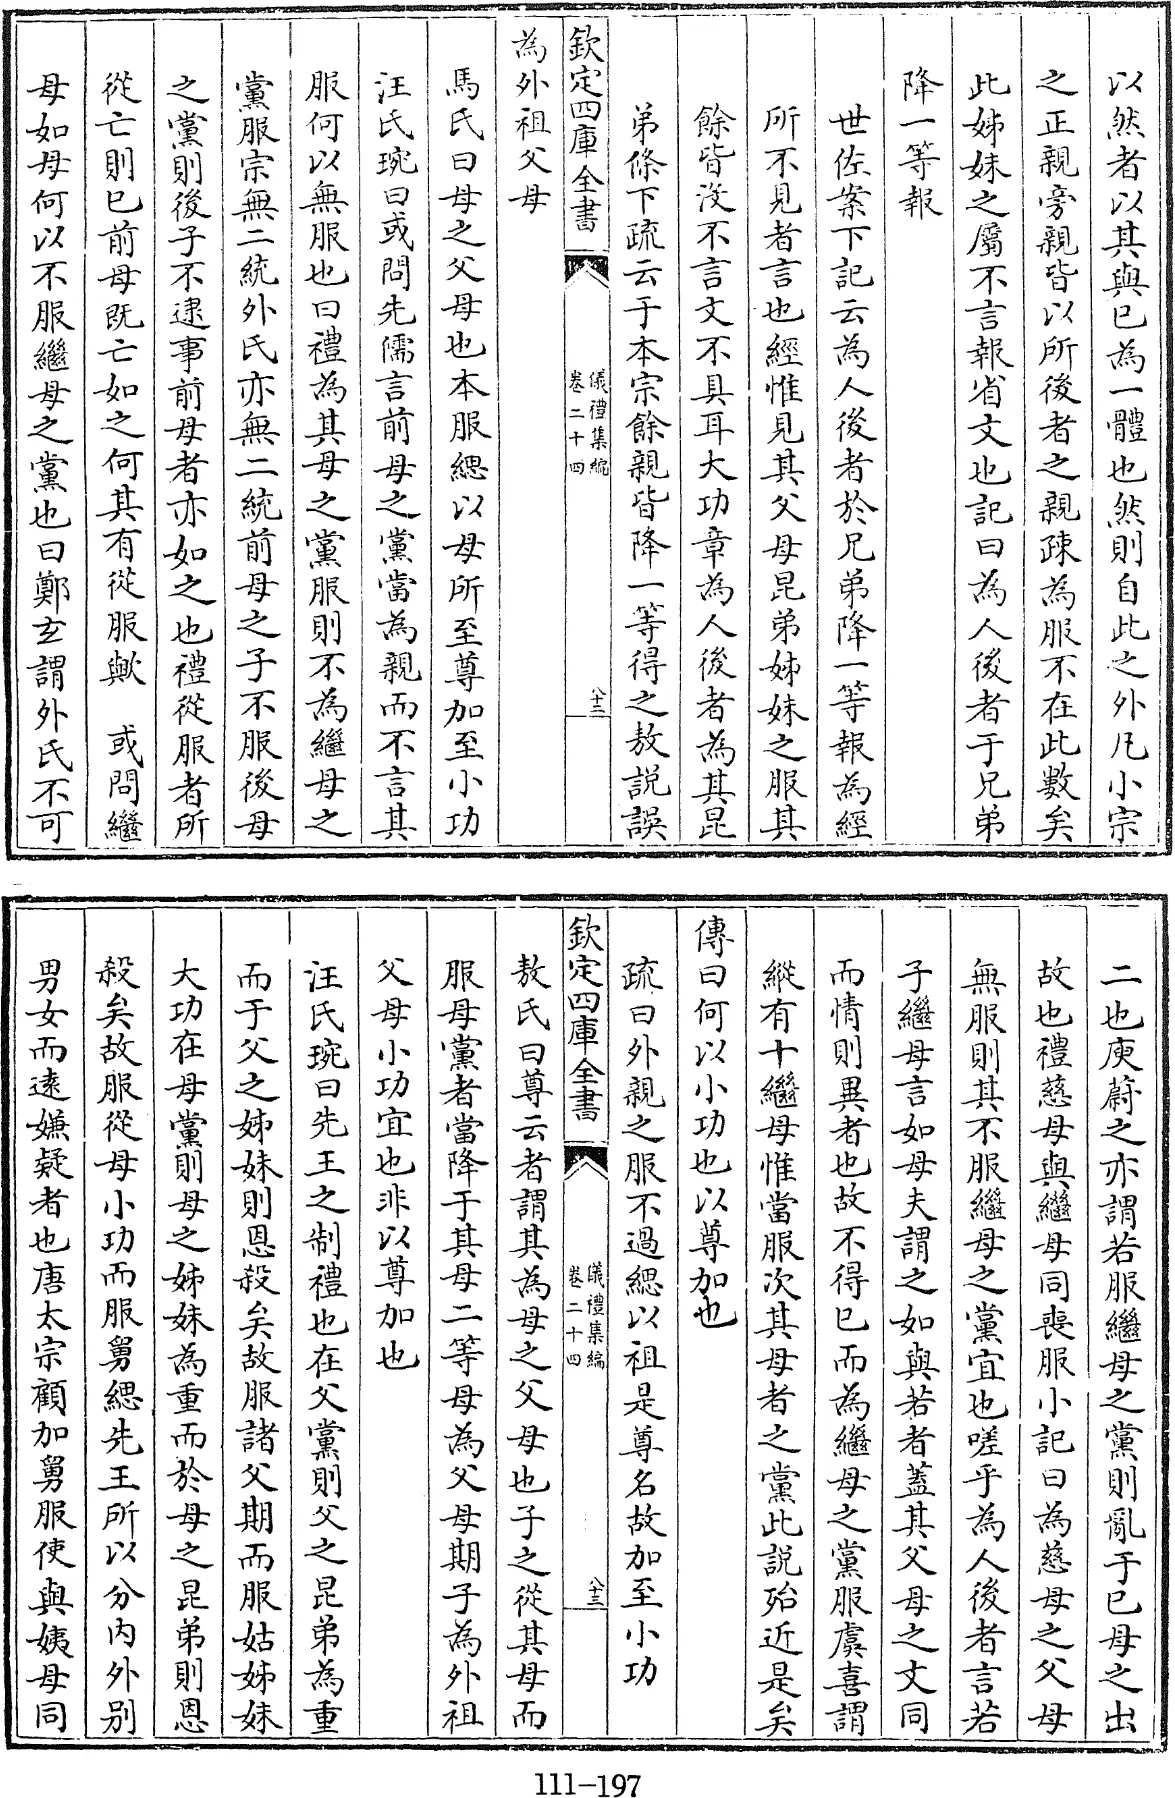 以然者以其與已為一體也然則自此之外凡小宗
之正親旁親皆以所後者之親疎為服不在此數矣
此姊妹之屬不言報省文也記曰為人後者于兄弟
降一等報
世佐案下記云為人後者於兄弟降一等報為經
所不見者言也經惟見其父母昆弟姊妹之服其
餘皆沒不言文不具耳大功章為人後者為其昆
弟條下疏云于本宗餘親皆降一等得之敖說誤
欽定四庫全書
儀禮集編
卷二十四
八十二
為外祖父母
馬氏曰母之父母也本服緦以母所至尊加至小功
汪氏琬曰或問先儒言前母之黨當為親而不言其
服何以無服也曰禮為其母之黨服則不為繼母之
黨服宗無二統外氏亦無二統前母之子不服後母
之黨則後子不逮事前母者亦如之也禮從服者所
從亡則已前母既亡如之何其有從服歟 或問繼
母如母何以不服繼母之黨也曰鄭玄謂外氏不可
二也庾蔚之亦謂若服繼母之黨則亂于已母之出
故也禮慈母與繼母同喪服小記曰為慈母之父母
無服則其不服繼母之黨宜也嗟乎為人後者言若
子繼母言如母夫謂之如與若者蓋其父母之文同
而情則異者也故不得已而為繼母之黨服虞喜謂
縱有十繼母惟當服次其母者之黨此說殆近是矣
傳曰何以小功也以尊加也
疏曰外親之服不過緦以祖是尊名故加至小功
欽定四庫全書
儀禮集編
卷二十四
八十三
敖氏曰尊云者謂其為母之父母也子之從其母而
服母黨者當降于其母二等母為父母期子為外祖
父母小功宜也非以尊加也
汪氏琬曰先王之制禮也在父黨則父之昆弟為重
而于父之姊妹則恩殺矣故服諸父期而服姑姊妹
大功在母黨則母之姊妹為重而於母之昆弟則恩
殺矣故服從母小功而服舅緦先王所以分內外別
男女而遠嫌疑者也唐太宗顧加舅服使與姨母同
111-197